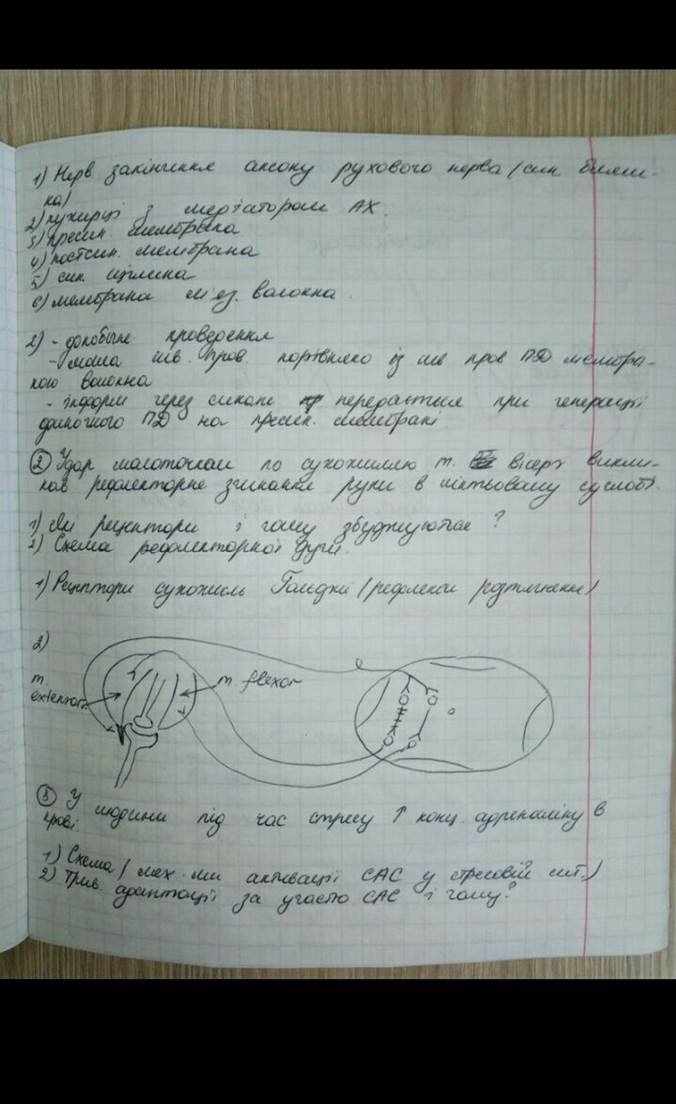 1) Нерв закінчення аксону рухового нерва (син. бляш-
ка)
2) пухирці з медіатором АХ.
3) пресин. мембрана
4) постсин. мембрана
5) син. щілина
6) мембрана м'яз. волокна.
2) - однобічне проведення
- мала шв. пров. порівняно із шв пров ПД мембра-
ною волокна
- інформ через синапс передається при генерації
одиночного ПД на пресин. мембрані
② Удар молоточком по сухожиллю m. biceps викли-
кав рефлекторне згинання руки в ліктьовому суглобі.
1) Які рецептори і чому збуджуються?
2) Схема рефлекторної дуги.
1) Рецептори сухожиль Гольджі (рефлекси розтягнення)
2)
m. extensor
m flexor
③ У людини під час стресу ↑ конц. адреналіну в
крові.
1) Схема (мех-ми активації САС у стресовій сит.)
2) Трив. адаптації за участю САС і чому?